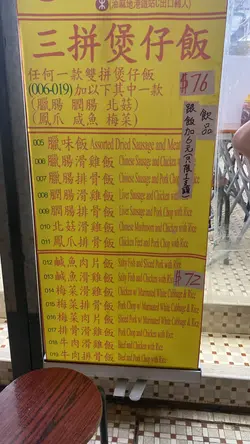 (油麻地港鐵站C出口轉入)
三拼煲仔飯
任何一款雙拼煲仔飯
(006-019)加以下其中一款
(臘腸 膶腸 北菇)
(鳳爪 咸魚 梅菜)
$76
飲品
跟飯加6元
005 臘味飯 Assorted Dried Sausage and Meat
006 臘腸滑雞飯 Chinese Sausage and Chicken
007 臘腸排骨飯 Chinese Sausage and Pork Chop
008 膶腸滑雞飯 Liver Sausage and Chicken with Rice
009 膶腸排骨飯 Liver Sausage and Pork Chop with Rice
010 北菇滑雞飯 Chinese Mushroom and Chicken with Rice
011 鳳爪排骨飯 Chicken Feet and Pork Chop with Rice
012 鹹魚肉片飯 Salty Fish and Sliced Pork with Rice
013 鹹魚滑雞飯 Salty Fish and Chicken with Rice
$72
014 梅菜滑雞飯 Chicken w/ Marinated White Cabbage & Rice
015 梅菜排骨飯 Pork Chop w/ Marinated White Cabbage & Rice
016 梅菜肉片飯 Sliced Pork w/ Marinated White Cabbage & Rice
017 排骨滑雞飯 Pork Chop and Chicken with Rice
018 牛肉滑雞飯 Beef and Chicken with Rice
019 牛肉排骨飯 Beef and Pork Chop with Rice